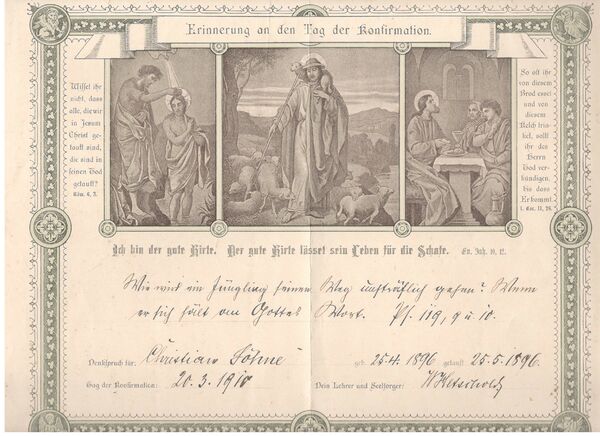 Erinnerung an den Tag der Konfirmation.
Wisset ihr
nicht, dass
alle, die wir
in Jesum
Christ ge-
tauft sind,
die sind in
seinen Tod
getauft?
Röm. 6, 3.
So oft ihr
von diesem
Brod esset
und von
diesem
Kelch trin-
ket, sollt
ihr des
Herrn
Tod ver-
kündigen,
bis dass
Er kommt.
1. Cor. 11, 26.
Ich bin der gute Hirte. Der gute Hirte lässet sein Leben für die Schafe. Ev. Joh. 10, 12.
Wie wird ein Jüngling seinen Weg unsträflich gehen? Wenn
er sich hält an Gottes Wort. Ps. 119, 9 u. 10.
Denkspruch für: Christian Böhne geb. 25.4. 1896 getauft 25.5.1896.
Tag der Konfirmation: 20.3.1910 Dein Lehrer und Seelsorger: